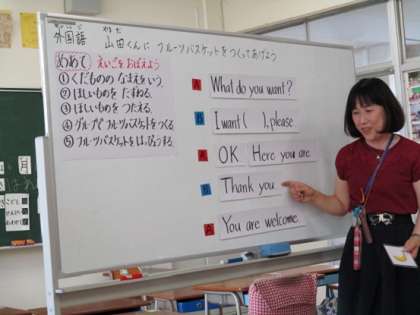 外国語 山田くんに フルーツバスケットをつくってあげよう
めあて えいごをおぼえよう
①くだものの なまえをいう。
②ほしいものを たずねる。
③ほしいものを つたえる。
④グループで フルーツバスケットをつくる
⑤フルーツバスケットをはっぴょうする。
A What do you want?
B I want ( ), please
A OK Here you are
B Thank you
A You are welcome